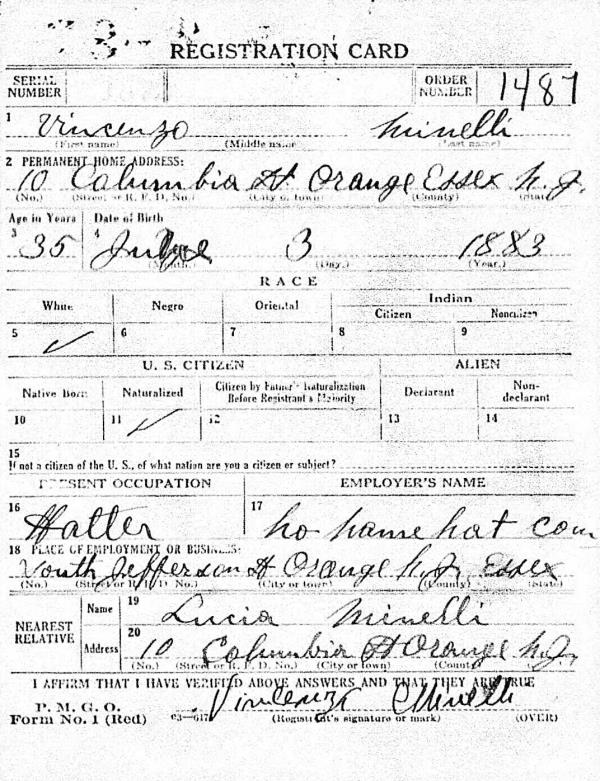 REGISTRATION CARD
SERIAL NUMBER ORDER NUMBER 1487
1 Vincenzo Minelli
(First name) (Middle name) (Last name)
2 PERMANENT HOME ADDRESS:
10 Columbia St Orange Essex N.J.
(No.) (Street or R. F. D. No.) (City or town) (County) (State)
Age in Years Date of Birth
3 35 4 3 1883
(Month.) (Day.) (Year.)
RACE
White Negro Oriental Indian
Citizen Noncitizen
5 ✓ 6 7 8 9
U. S. CITIZEN ALIEN
Native Born Naturalized Citizen by Father's Naturalization Before Registrant's Majority Declarant Non-declarant
10 11 ✓ 12 13 14
15
If not a citizen of the U. S., of what nation are you a citizen or subject?
PRESENT OCCUPATION EMPLOYER'S NAME
16 Hatter 17 No Name Hat Com
18 PLACE OF EMPLOYMENT OR BUSINESS:
South Jefferson St Orange N.J. Essex
(No.) (Street or R. F. D. No.) (City or town) (County) (State)
NEAREST RELATIVE Name 19 Lucia Minelli
Address 20 10 Columbia St Orange N.J.
(No.) (Street or R. F. D. No.) (City or town) (County) (State)
I AFFIRM THAT I HAVE VERIFIED ABOVE ANSWERS AND THAT THEY ARE TRUE
P. M. G. O.
Form No. 1 (Red) 03—6171 Vincenzo Minelli
(Registrant's signature or mark) (OVER)